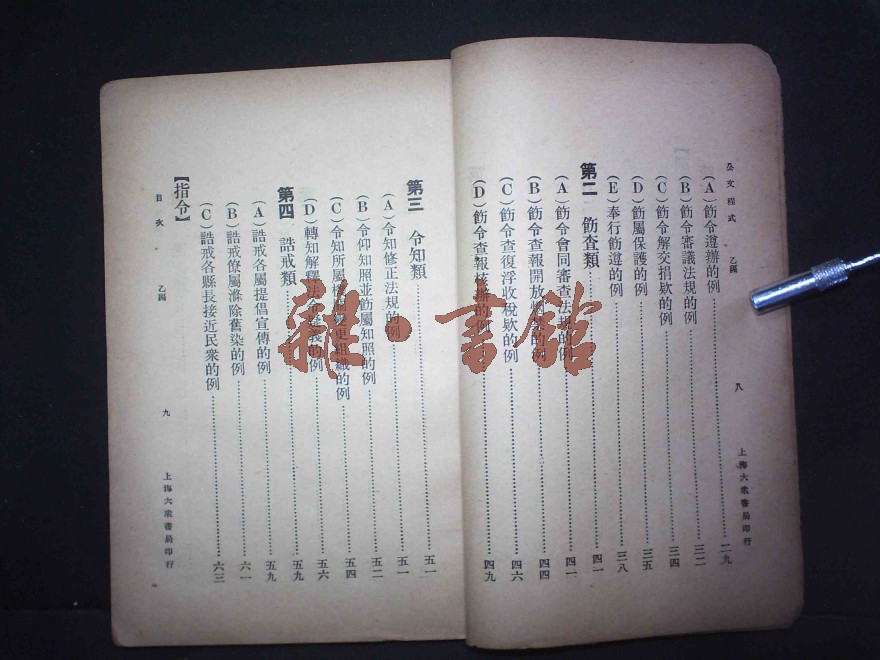 公文程式 乙編 八 上海大衆書局印行
(A) 飭令遵辦的例 二九
(B) 飭令審議法規的例 三二
(C) 飭令解交捐欵的例 三四
(D) 飭屬保護的例 三五
(E) 奉行飭遵的例 三八
第二 飭查類 四一
(A) 飭令會同審查法規的例 四一
(B) 飭令查報開放 的例 四四
(C) 飭令查復浮收稅欵的例 四六
(D) 飭令查報核辦的例 四九
第三 令知類 五一
(A) 令知修正法規的例 五一
(B) 令仰知照並飭屬知照的例 五二
(C) 令知所屬機關變更組織的例 五四
(D) 轉知解釋法令疑義的例 五六
第四 誥戒類 五九
(A) 誥戒各屬提倡宣傳的例 五九
(B) 誥戒僚屬滌除舊染的例 六一
(C) 誥戒各縣長接近民衆的例 六三
【指令】
目次 乙編 九 上海大衆書局印行
雜·書館